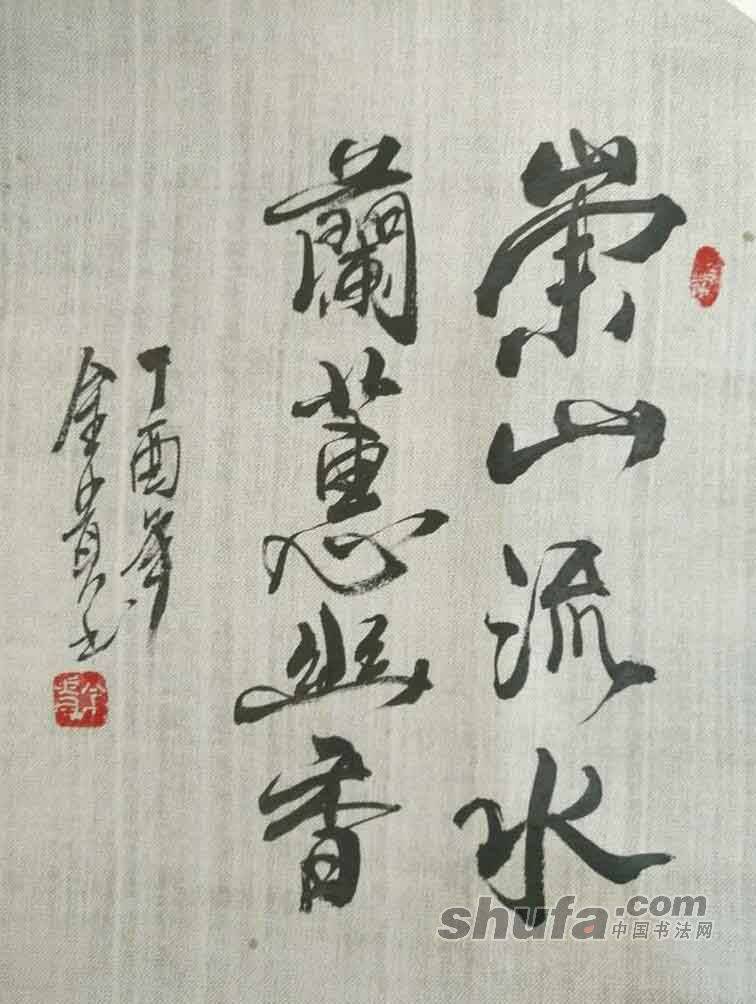 崇山流水
蘭蕙幽香
丁酉年
金貴书
shufa.com
中国书法网